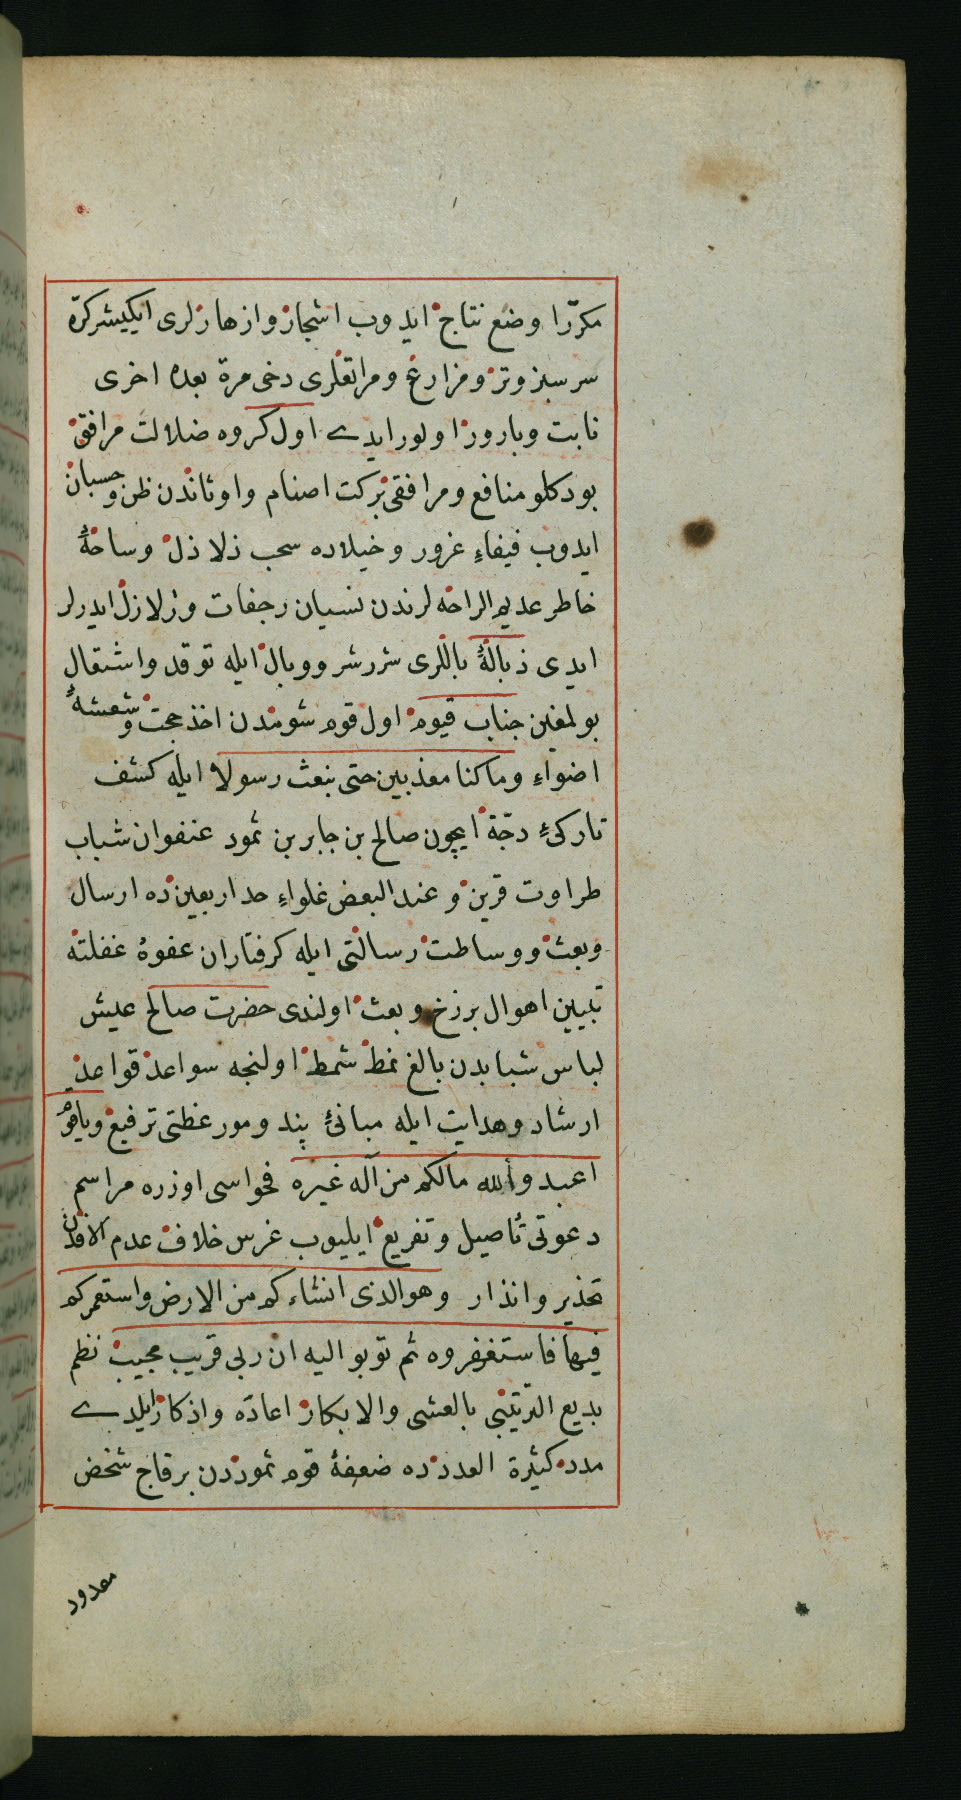 مكرّرا وضع نتاج ايدوب اشجار و ازهارلرى ايكيشر كرّه
سرسبز وتر و مزارع ومراتعلرى دخى مرة بعده اخرى
نابت و بارور اولور ايدى اول كروه ضلالت مرافق
بو دكلو منافع ومرافقى بركت اصنام واوثاندن ظن و حسبان
ايدوب فيفاءِ غرور و خيلاده سحب ذلاذل وساحۀ
خاطر عديم الراحه لرندن نسيان رجفات وزلازل ايدرلر
ايدى ذبالۀ باللرى شرر شر و وبال ايله توقد واشتعال
بولمغين جناب قيوم اول قوم شومدن اخذ حجت و شعشعۀ
اضواءِ وما كنا معذبين حتى نبعث رسولا ايله كشف
تاركئ دجّة ايچون صالح بن جابر بن ثمود عنفوان شباب
طراوت قرين و عند البعض غلواءِ حد اربعينده ارسال
وبعث و وساطت رسالتى ايله كرفتاران عفوۀ غفلته
تبيين اهوال برزخ و بعث اولندى حضرت صالح عليش
لباس شبابدن بالغ نمط شمط اولنجه سواعد قواعد
ارشاد وهدايت ايله مبانئ پند و موعظتى ترفيع و ياقوم
اعبدوا لله مالكم من آله غيره فحواسى اوزره مراسم
دعوتى تأصيل و تفريع ايليوب غرس خلاف عدم
تحذير وانذار وهو الذى انشاءكم من الارض واستعمركم
فيها فاستغفروه ثم توبوا اليه ان ربى قريب مجيب نظم
بديع الترتيبنى بالعشى والابكار اعاده واذكار ايلدى
مدد كثيرة العددده ضعفۀ قوم ثموددن برقاج شخص
معدود